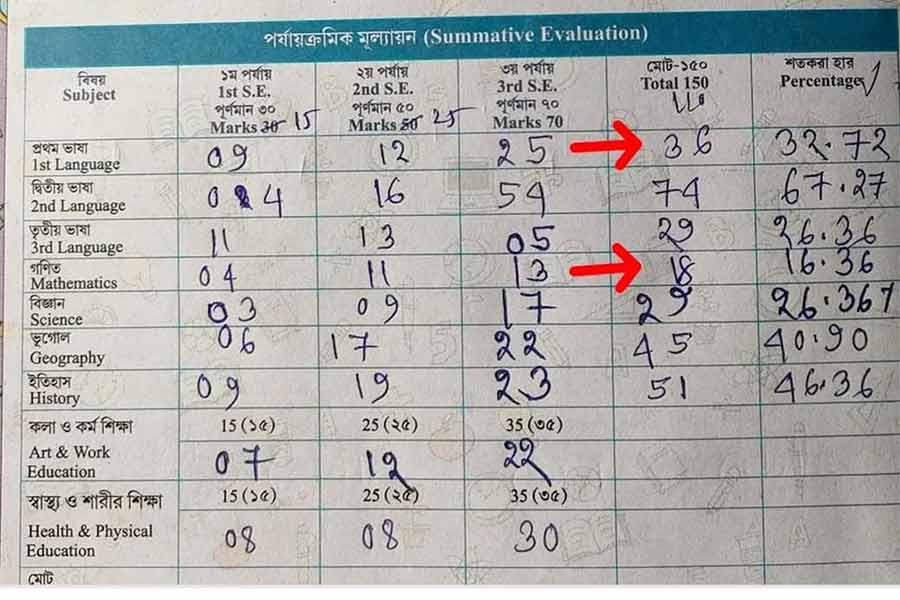 পর্যায়ক্রমিক মূল্যায়ন (Summative Evaluation)
বিষয় ১ম পর্যায় ২য় পর্যায় ৩য় পর্যায় মোট-১৫০ শতকরা হার
Subject 1st S.E. 2nd S.E. 3rd S.E. Total 150 Percentage
পূর্ণমান ৩০ পূর্ণমান ৫০ পূর্ণমান ৭০ 110
Marks 30 15 Marks 50 25 Marks 70
প্রথম ভাষা
1st Language 09 12 25 36 32.72
দ্বিতীয় ভাষা
2nd Language 04 16 54 74 67.27
তৃতীয় ভাষা
3rd Language 11 13 05 29 26.36
গণিত
Mathematics 04 11 13 18 16.36
বিজ্ঞান
Science 03 09 17 29 26.367
ভূগোল
Geography 06 17 22 45 40.90
ইতিহাস
History 09 19 23 51 46.36
কলা ও কর্ম শিক্ষা 15 (১৫) 25 (২৫) 35 (৩৫)
Art & Work
Education 07 12 22
স্বাস্থ্য ও শারীর শিক্ষা 15 (১৫) 25 (২৫) 35 (৩৫)
Health & Physical
Education 08 08 30
মোট